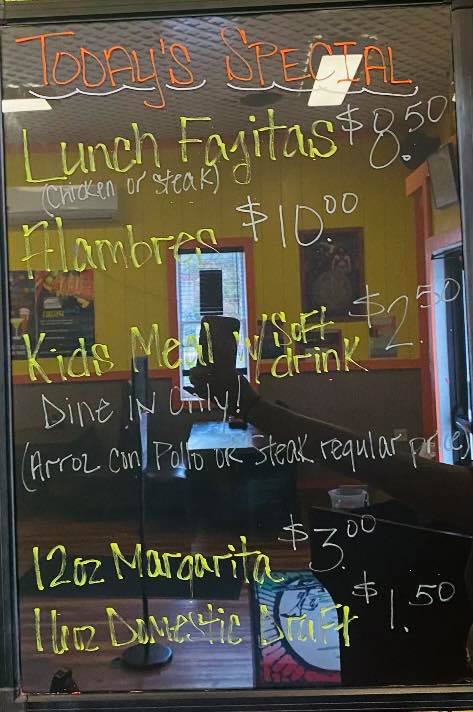 Today's Special
Lunch Fajitas $8.50
(Chicken or Steak)
Alambres $10.00
Kids Meal w/ Soft drink $2.50
Dine IN Only!
(Arroz con Pollo or Steak regular price)
12oz Margarita $3.00
16oz Domestic Draft $1.50